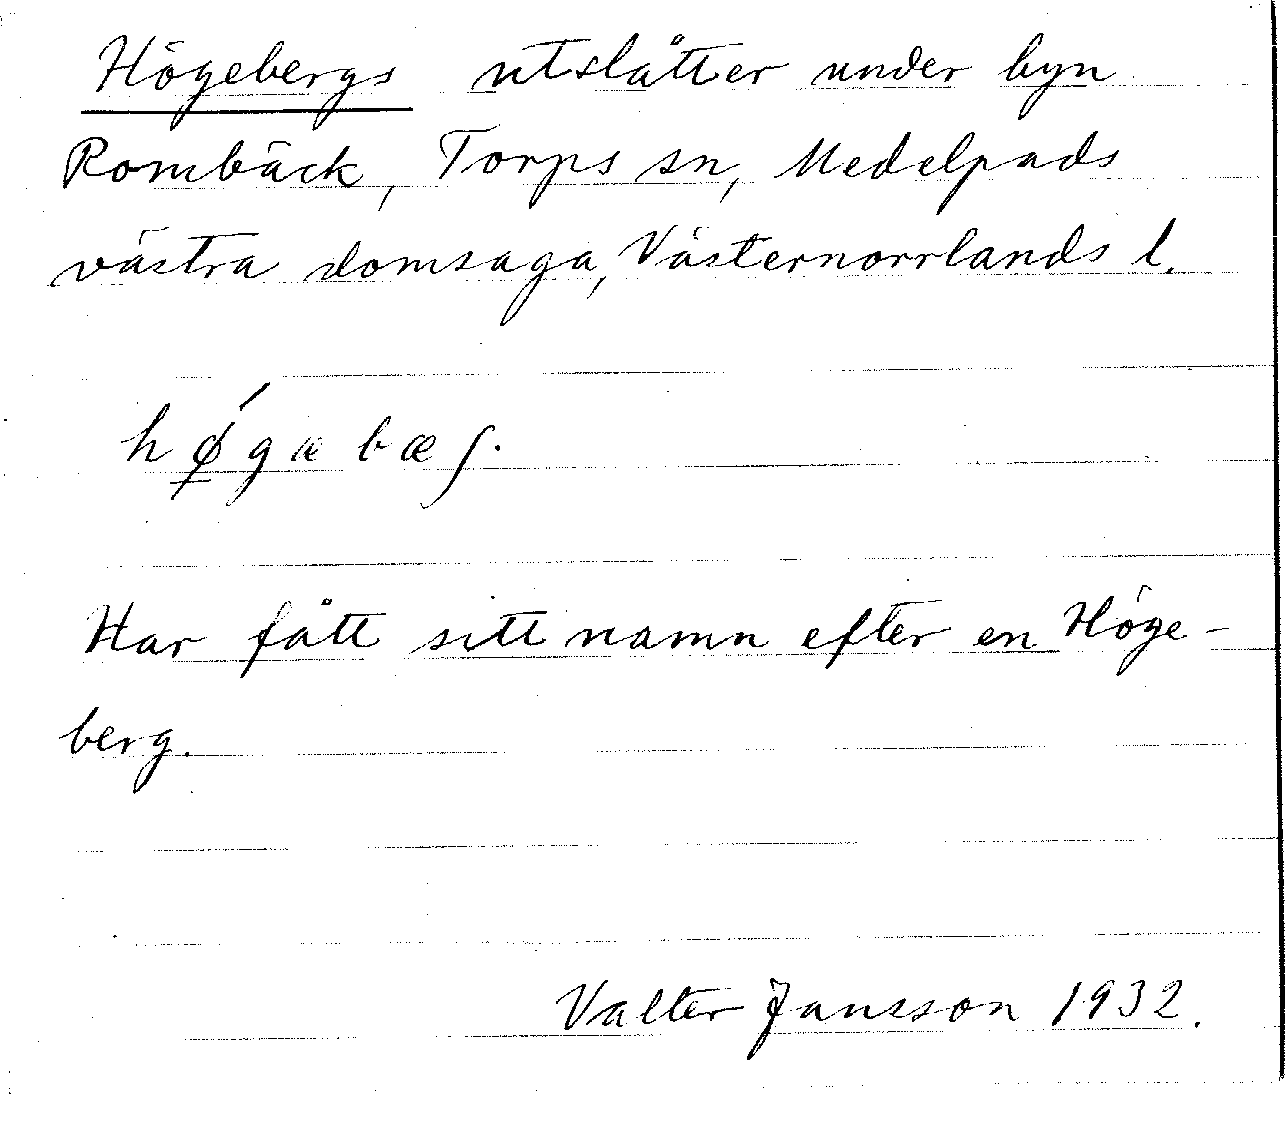 Högebergs utslåtter under byn
Rombäck, Torps sn, Medelpads
västra domsaga, Västernorrlands l.
hǿ̱gæbæʃ.
Har fått sitt namn efter en Höge-
berg.
Valter Jansson 1932.